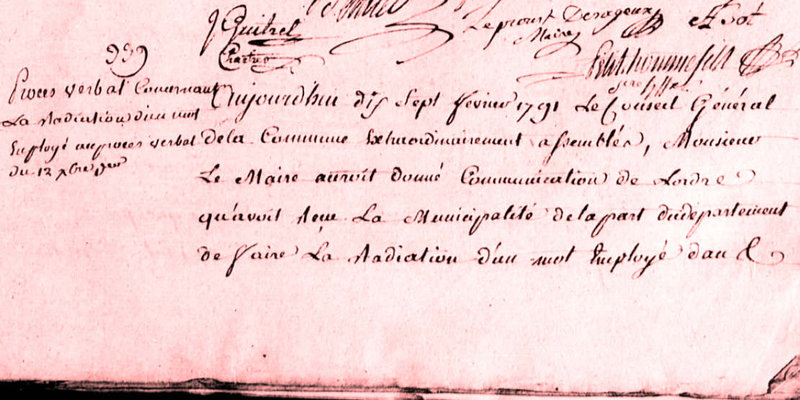 Guitrel
Le prout Derageux
Maire
Chartier
Petithomme fils
Proces verbal Concernant
La Radiation d'un mot
Employé au proces verbal
du 12 xbre der
Aujourdhui dix Sept fevrier 1791 Le Conseil Général
dela Commune Extraordinairement assemblés, Monsieur
Le Maire auroit donné Communication de Lordre
qu'avoit Recu La Municipalité delapart dudepartement
de faire La Radiation d'un mot Employé dans